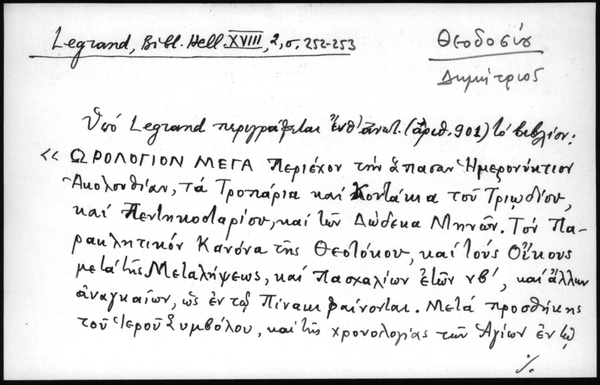 Legrand, Bibl. Hell. XVIII, 2, σ. 252-253
Θεοδοσίου
Δημήτριος
Ὑπό Legrand περιγράφεται ἔνθ' ἀνωτ. (ἀριθ. 901) τό βιβλίον:
<< ΩΡΟΛΟΓΙΟΝ ΜΕΓΑ Περιέχον τήν ἅπασαν Ἡμερονύκτιον
Ἀκολουθίαν, τά Τροπάρια καί Κοντάκια τοῦ Τριῳδίου,
καί Πεντηκοσταρίου, καί τῶν Δώδεκα Μηνῶν. Τόν Πα-
ρακλητικόν Κανόνα τῆς Θεοτόκου, καί τούς Οἴκους
μετά τῆς Μεταλήψεως, καί Πασχαλίων ἐτῶν νβ', καί ἄλλων
ἀναγκαίων, ὡς ἐν τῷ Πίνακι φαίνονται. Μετά προσθήκης
τοῦ Ἱεροῦ Συμβόλου, καί τῆς χρονολογίας τῶν Ἁγίων ἐν τῷ
./.